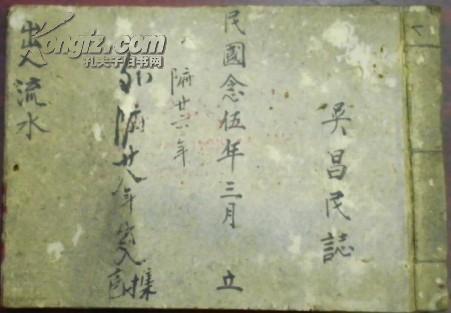 吳昌民誌
民國念伍年三月 立
附廿六年
附廿八年出入
出入流水
Kongfz.com
孔夫子旧书网